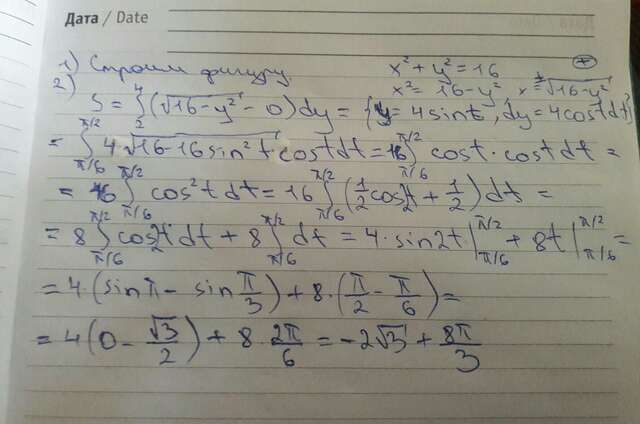 Дата / Date
1) Строим фигуру. x² + y² = 16
2) x² = 16 - y², x = ±√(16-y²)
S = ∫₂⁴ (√(16-y²) - 0) dy = {y = 4 sin t, dy = 4 cos t dt}
= ∫_{π/6}^{π/2} 4√(16-16 sin² t) · cos t dt = 16 ∫_{π/6}^{π/2} cos t · cos t dt =
= 16 ∫_{π/6}^{π/2} cos² t dt = 16 ∫_{π/6}^{π/2} (1/2 cos 2t + 1/2) dt =
= 8 ∫_{π/6}^{π/2} cos 2t dt + 8 ∫_{π/6}^{π/2} dt = 4 · sin 2t |_{π/6}^{π/2} + 8t |_{π/6}^{π/2} =
= 4 · (sin π - sin π/3) + 8 · (π/2 - π/6) =
= 4 (0 - √3/2) + 8 · 2π/6 = -2√3 + 8π/3